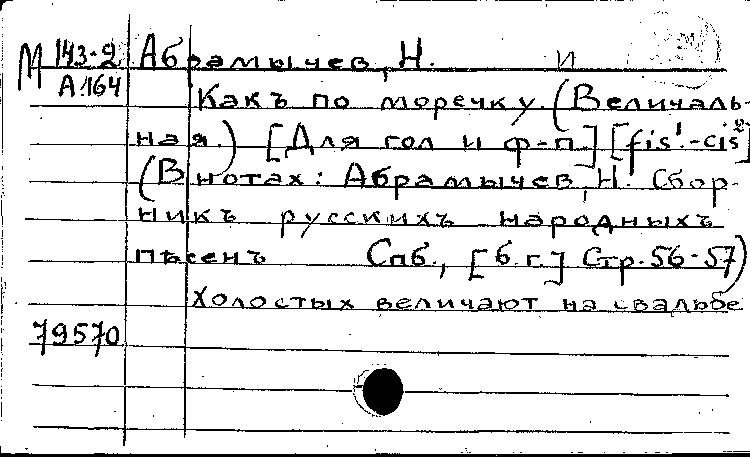 М 143-2 Абрамычев, Н. И
А.164
Какъ по моречку. (Величаль-
ная.) [Для гол и ф-п.] [fis¹-cis²]
(В нотах: Абрамычев, Н. Сбор-
никъ русскихъ народныхъ
пѣсенъ Спб., [б.г.] Стр. 56-57)
Холостых величают на свадьбе
79570